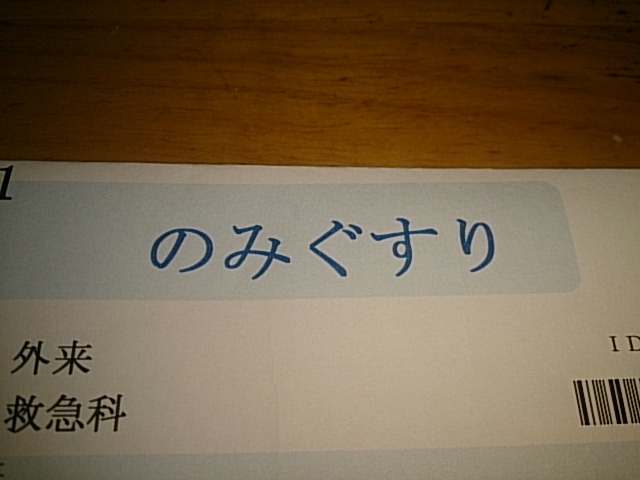 1
のみぐすり
外来
ID
救急科